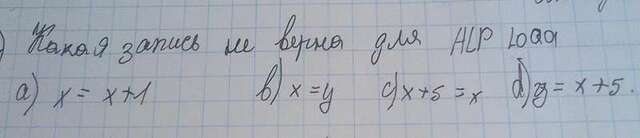 ) Какая запись не верна для ALP LOAA
a) x = x+1 b) x = y c) x+5 = x d) y = x+5.